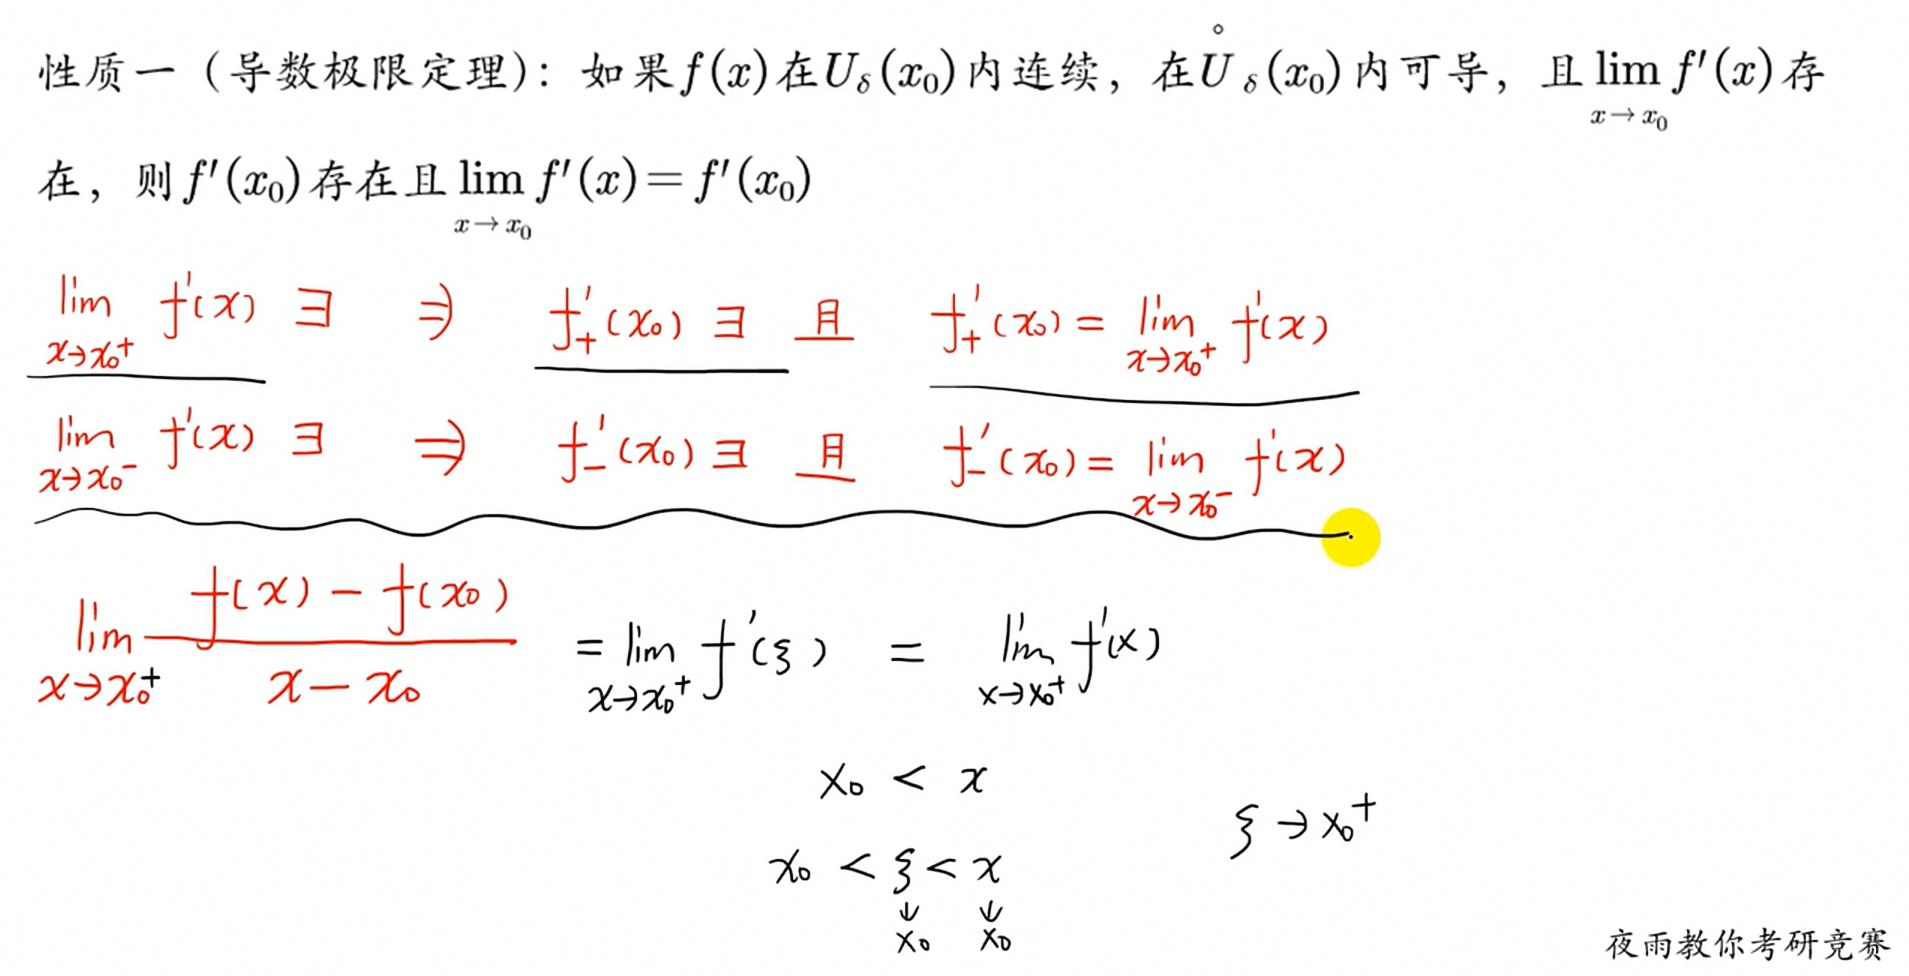 性质一（导数极限定理）：如果 f(x) 在 U_δ(x₀) 内连续，在 Ů_δ(x₀) 内可导，且 lim_{x→x₀} f′(x) 存
在，则 f′(x₀) 存在且 lim_{x→x₀} f′(x) = f′(x₀)
lim_{x→x₀⁺} f′(x) ∃ ⇒ f′₊(x₀) ∃ 且 f′₊(x₀) = lim_{x→x₀⁺} f′(x)
lim_{x→x₀⁻} f′(x) ∃ ⇒ f′₋(x₀) ∃ 且 f′₋(x₀) = lim_{x→x₀⁻} f′(x)
lim_{x→x₀⁺} (f(x) − f(x₀))/(x − x₀) = lim_{x→x₀⁺} f′(ξ) = lim_{x→x₀⁺} f′(x)
x₀ < x
ξ → x₀⁺
x₀ < ξ < x
↓ ↓
x₀ x₀
夜雨教你考研竞赛